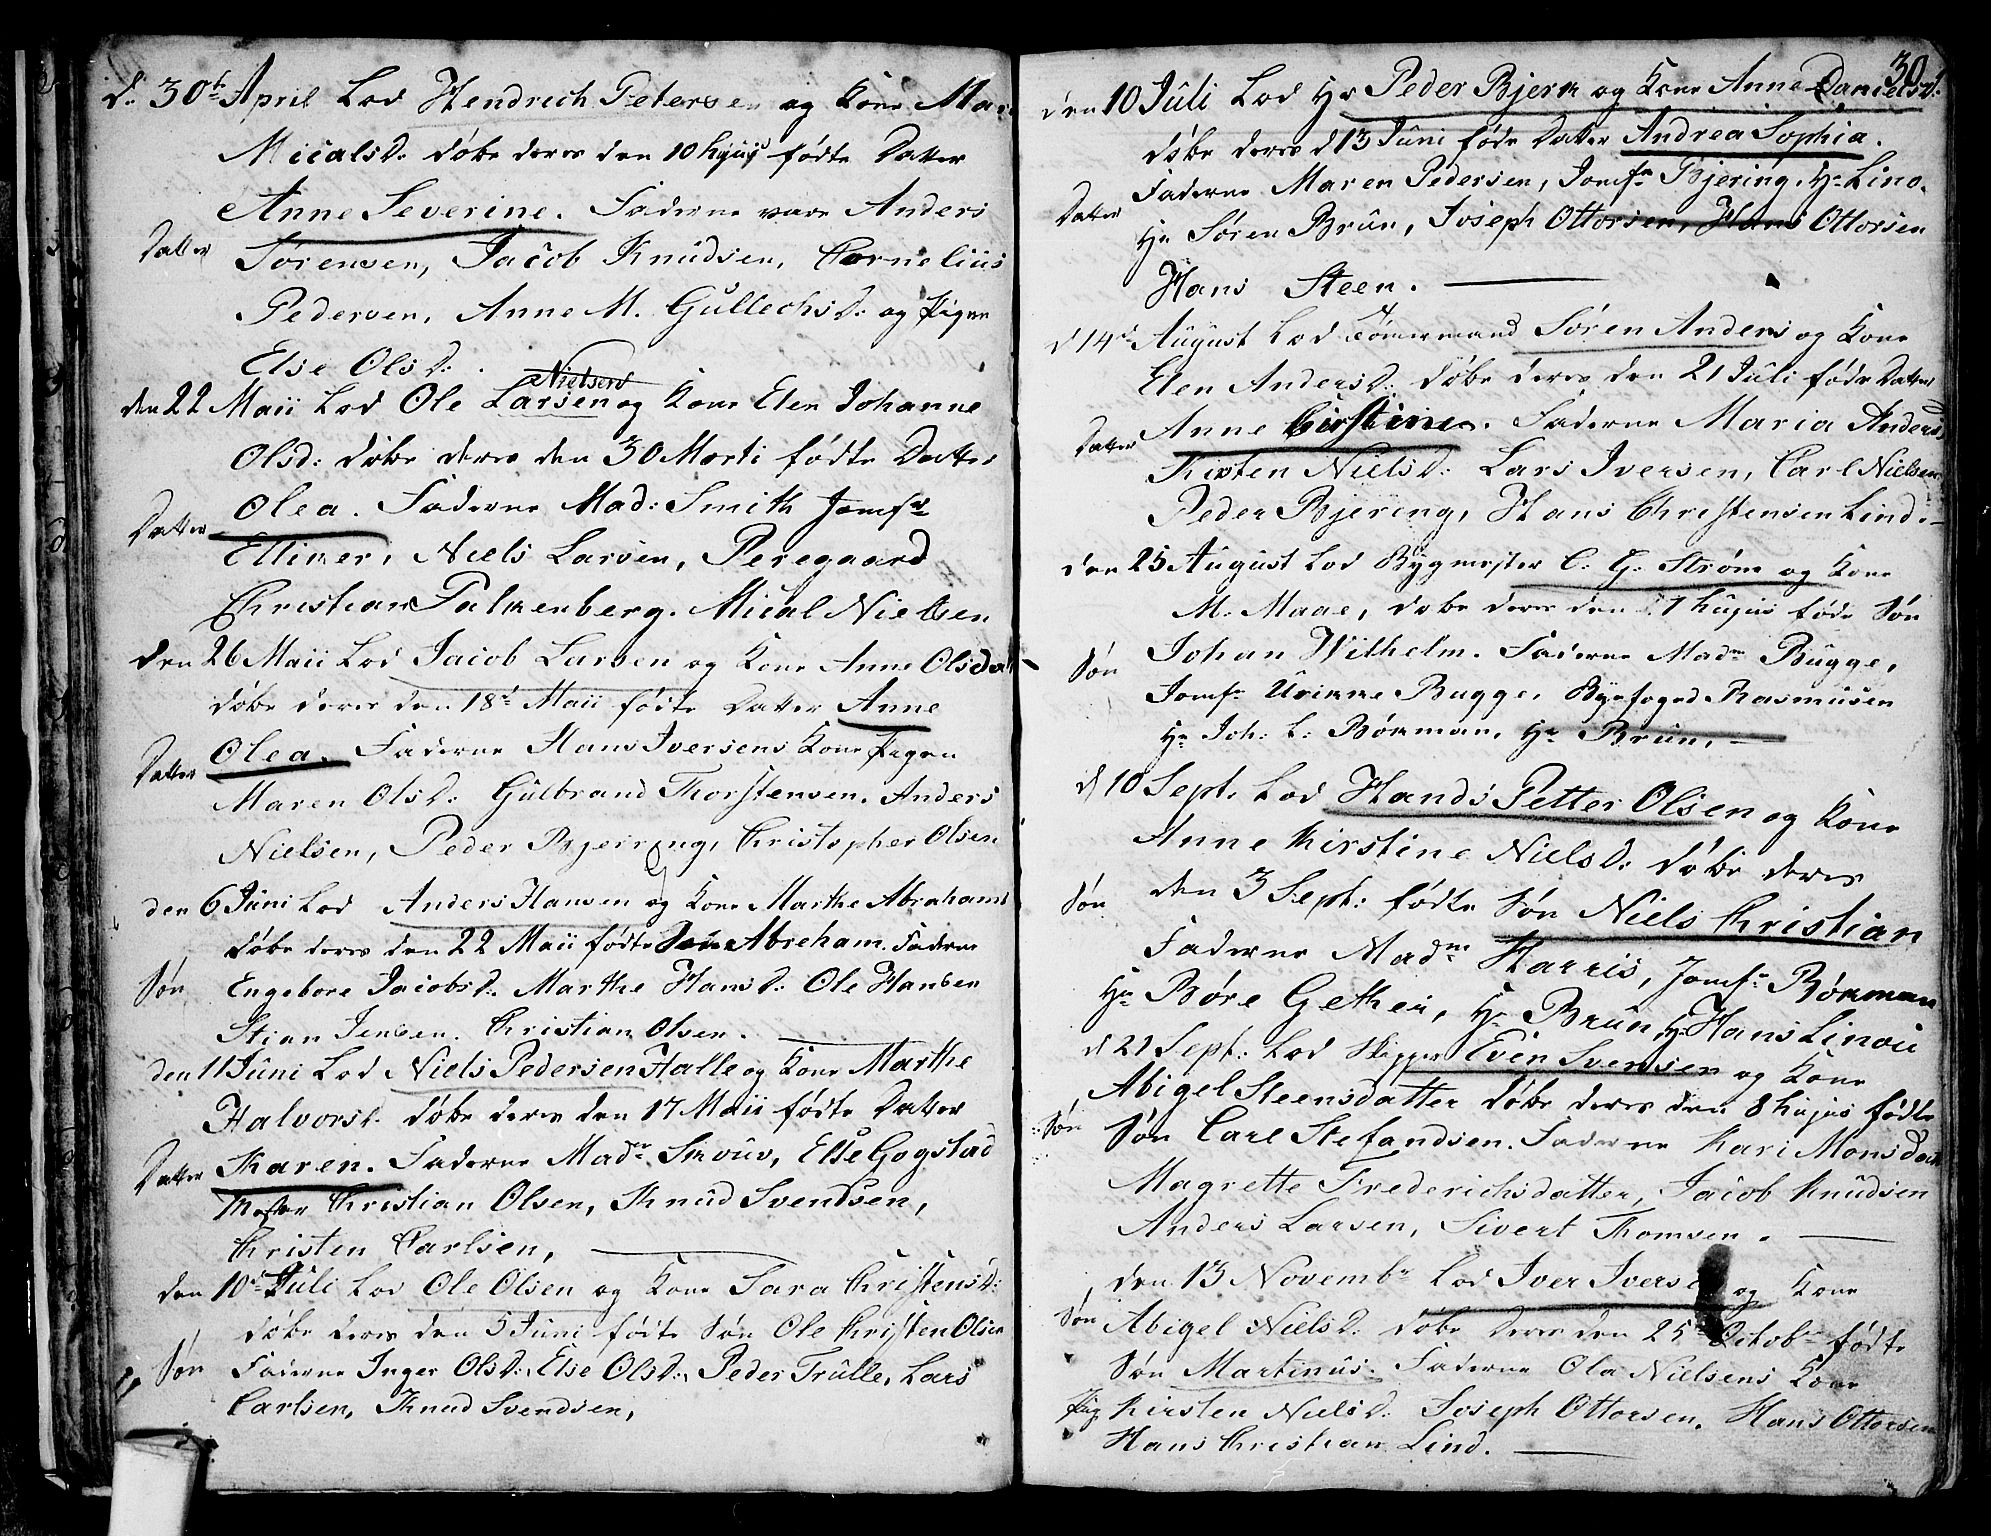 d. 30t April Lod Hendrich Petersen og Kone Mar
Micalsd. døbe deres den 10 hujus fødte Datter
Anne Severine. Faderne vare Anders
Datter
Sørensen, Jacob Knudsen, Cornelius
Pedersen, Anne M. Gullechsd: og Pigen
Else Olsd:.
Nielsens
den 22 Maii Lod Ole Larsen og Kone Elen Johanne
Olsd: døbe deres den 30 Marti fødte Datter
Datter
Olea. Faderne Mad: Smith Jomfr
Ellimer, Niels Larsen, Peregaard
Christian Falkenberg. Mical Nielsen
den 26 Maii Lod Jacob Larsen og Kone Anne Olsdat
døbe deres den 18d Maii fødte Datter Anne
Datter
Olea. Faderne Hans Iversens Kone Pigen
Maren Olsd: Gulbrand Thorstensen. Anders
Nielsen, Peder Bjerring, Christopher Olsen
den 6 Juni Lod Anders Hansen og Kone Marthe Abrahams
døbe deres den 22 Maii fødte Søn Abreham. Faderne
Søn
Engebore Jacobsd. Marthe Hansd: Ole Hansen
Stian Jensen. Christian Olsen.
den 11 Juni Lod Niels Pedersen Halle og Kone Marthe
Halvorsd. døbe deres den 17 Maii fødte Datter
Datter
Karen. Faderne Madm Skouv, Else Gogstad
Mester Christian Olsen, Knud Svendsen,
Christen Carlsen,
den 10d Juli Lod Ole Olsen og Kone Sara Christensd:
døbe deres den 5 Juni fødte Søn Ole Christen Olsen
Søn
Faderne Inger Olsd: Else Olsd: Peder Trulle, Lars
Carlsen, Knud Svendsen,
30
den 10 Juli Lod Hr Peder Bjerk og Kone Anne Danielsd:
døbe deres d 13 Juni føde Datter Andrea Sophia.
Faderne Maren Pedersen, Jomfr Bjering, Hr Lino.
Datter
Hr Søren Brun, Joseph Ottorsen, Hans Ottorsen
Hans Steen.
d 14d August Lod Tømermand Søren Anders og Kone
Elen Andersd: døbe deres den 21 Juli føde Datter
Anne Cirstine. Faderne Maria Anders
Datter
Kirsten Nielsd: Lars Iversen, Carl Nielsen
Peder Bjering, Hans Christensen Lind.
den 25 August Lod Bygmester C. G. Strøm og Kone
M. Maae, døbe deres den 1 hujus føde Søn
Søn
Johan Wilhelm. Faderne Madm Bugge,
Jomfr Ulrikke Bugge, Byefoged Rasmusen
Hr Joh: L. Børkman, Hr Brun,
d 10 Sept. Lod Hands Petter Olsen og Kone
Anne Kirstine Nielsd: døbe deres
Søn
den 3 Sept: fødte Søn Niels Christian
Faderne Madm Harris, Jomfr Børkman
Hr Børe Gether, Hr Brun, Hr Hans Linoü
d 21 Sept: Lod Skipper Even Svensen og Kone
Abigel Steensdatter døbe deres den 8 hujus fødte
Søn
Søn Carl Stefandsen. Faderne Kari Monsdat
Magrette Frederichsdatter, Jacob Knudsen
Anders Larsen, Sivert Thomsen.
den 13 Novembr Lod Iver Iversen og Kone
Søn
Abigel Nielsd: døbe deres den 25 Octobr fødte
Søn Martinus. Faderne Ola Nielsens Kone
Pig Kirsten Nielsd: Joseph Ottorsen. Hans Ottorsen
Hans Christian Lind.